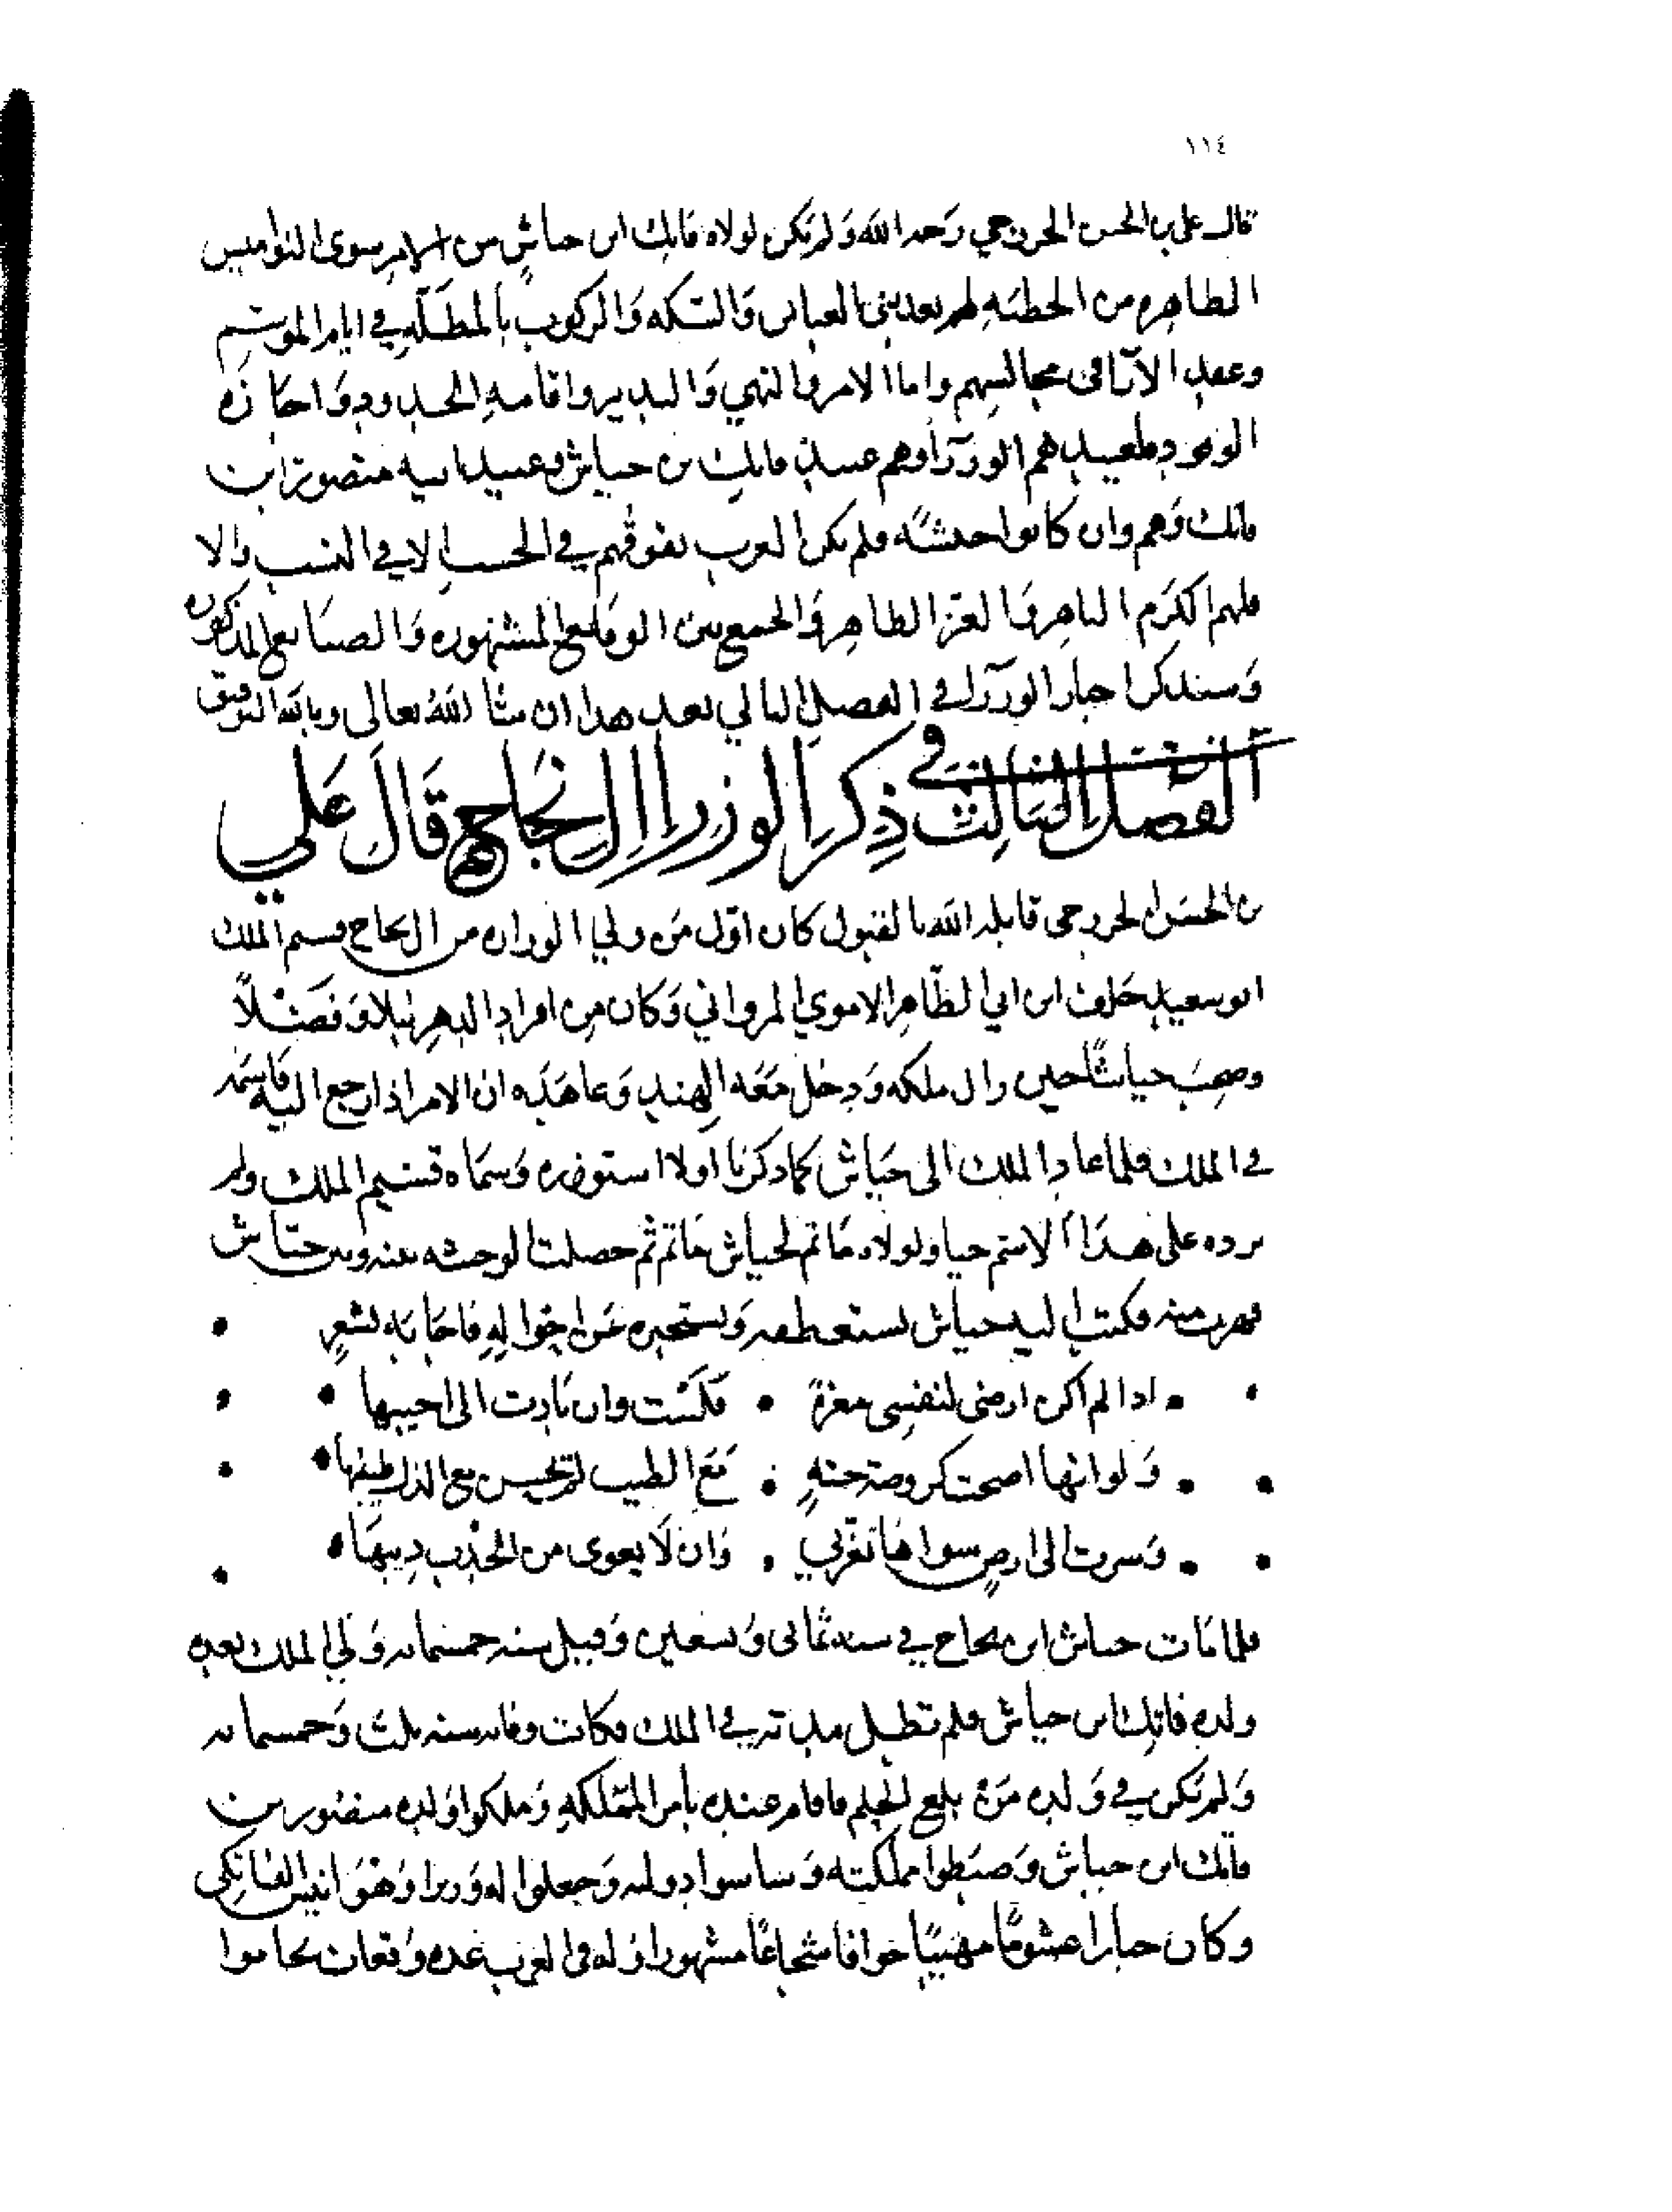 ١١٤
قال علي بن الحسن الخزرجي رحمه الله ولم يكن لولاه فاتك ابن جياش من الامر سوى النواميس
الظاهره من الخطبه لهم بعد بني العباس والسكه والركوب بالمظله في ايام الموسم
وعقد الآراء في مجالسهم واما الامر والنهي والتدبير واقامه الحدود واجازه
الوفود فلعبيدهم الوزرآ وهم عبيد فاتك بن جياش وعبيد ابيه منصور ابن
فاتك وهم وان كانوا حبشه فلم تكن العرب تفوقهم في الحسب الا في النسب والا
فلهم الكرم الباهر والعز الظاهر والجمع بين الوقايع المشهوره والصنايع المذكوره
وسنذكر اخبار الوزرآ في الفصل التالي بعد هذا ان شا الله تعالى وبالله التوفيق
الفصل الثالث في ذكر الوزرا ال نجاح قال علي
بن الحسن الخزرجي قابله الله بالقبول كان اول من ولي الوزاره من ال نجاح قسيم الملك
ابو سعيد خلف ابن ابي الطاهر الاموي المرواني وكان من افراد الدهر نبلا وفضلاً
وصحب جياشًا حين زال ملكه ودخل معه الهند وعاهده ان الامر اذا رجع اليه قاسمه
في الملك فلما عاد الملك الى جياش كما ذكرنا اولا استوزره وسماه قسيم الملك ولم
يزده على هذا الاسم حيا ولولاه ما تم لجياش ما تم ثم حصلت الوحشه بينه وبين جياش
فهرب منه فكتب اليه جياش يستعطفه ويستخبره عن احواله فاجابه بشعرٍ
اذا لم اكن ارضى لنفسي معزة • فلست وان نادت الى اجيبها
ولو انها اضحت كروضة جنةٍ • مع الطيب لم يحسن مع الذل طيبها
وسرت الى ارضٍ سواها تعزني • وان لا يعوى من الجذب ذيبها
فلما مات جياش ابن نجاح في سنه ثماني وتسعين وقيل سنه خمسمائه ولي الملك بعده
ولده فاتك ابن جياش فلم تطل مدته في الملك فكانت وفاته سنه ثلث وخمسمائه
ولم يكن في ولده من بلغ الحلم فاقام عبيده بأمر المملكه وملكوا ولده منصور بن
فاتك ابن جياش وضبطوا مملكته وساسوا دولته وجعلوا له وزيرا وهو انيس الفاتكي
وكان جبارا غشومًا مهيبًا جوادًا شجاعًا مشهورا وله في العرب عده وقعات تحاموا